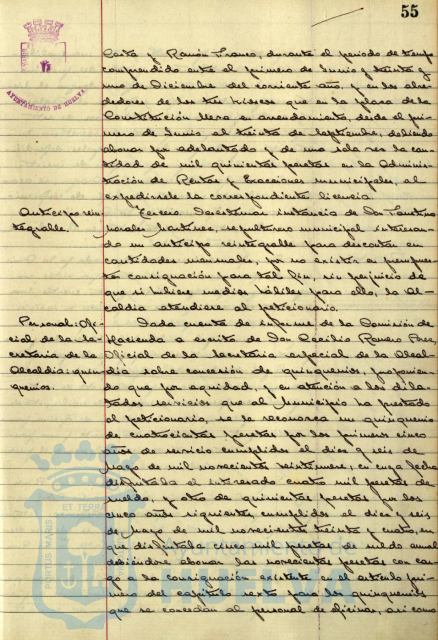 55
AYUNTAMIENTO DE HUELVA
Casta y Ramón Franco, durante el periodo de tiempo
comprendido entre el primero de Junio y treinta y
uno de Diciembre del corriente año, y en los alre-
dedores de los tres kioscos que en la plaza de la
Constitución lleva en arrendamiento, desde el pri-
mero de Junio al treinta de Septiembre, debiendo
abonar por adelantado y de una sola vez la can-
tidad de mil quinientas pesetas en la Adminis-
tración de Rentas y Exacciones municipales, al
expedírsele la correspondiente licencia.
Anticipo rein-
tegrable.
Tercero. Desestimar instancia de Don Faustino
Morales Martínez, sepulturero municipal interesan-
do un anticipo reintegrable para descontar en
cantidades mensuales, por no existir en presupues-
to consignación para tal fin, sin perjuicio de
que si hubiere medios hábiles para ello, la Al-
caldía atendiese al peticionario.
Personal: Ofi-
cial de la Se-
cretaría de la
Alcaldía: quin-
quenios.
Dada cuenta de informe de la Comisión de
Hacienda a escrito de Don Cecilio Romero
Oficial de la Secretaría especial de la Alcal-
día sobre concesión de quinquenios, proponien-
do que por equidad, y en atención a los dila-
tados servicios que al Municipio ha prestado
el peticionario, se le reconozca un quinquenio
de cuatrocientas pesetas por los primeros cinco
años de servicio cumplidos el diez y seis de
Mayo de mil novecientos veintinueve, en cuya fecha
disfrutaba el interesado cuatro mil pesetas de
sueldo, y otro de quinientas pesetas por los
cinco años siguientes cumplidos el diez y seis
de Mayo de mil novecientos treinta y cuatro, en
que disfrutaba cinco mil pesetas de sueldo anual
debiéndose abonar las novecientas pesetas con car-
go a la consignación existente en el artículo pri-
mero del capítulo sexto para los quinquenios
que se concedan al personal de oficinas, así como
ET TERR
PORTUS MARIS
Ayuntamiento de